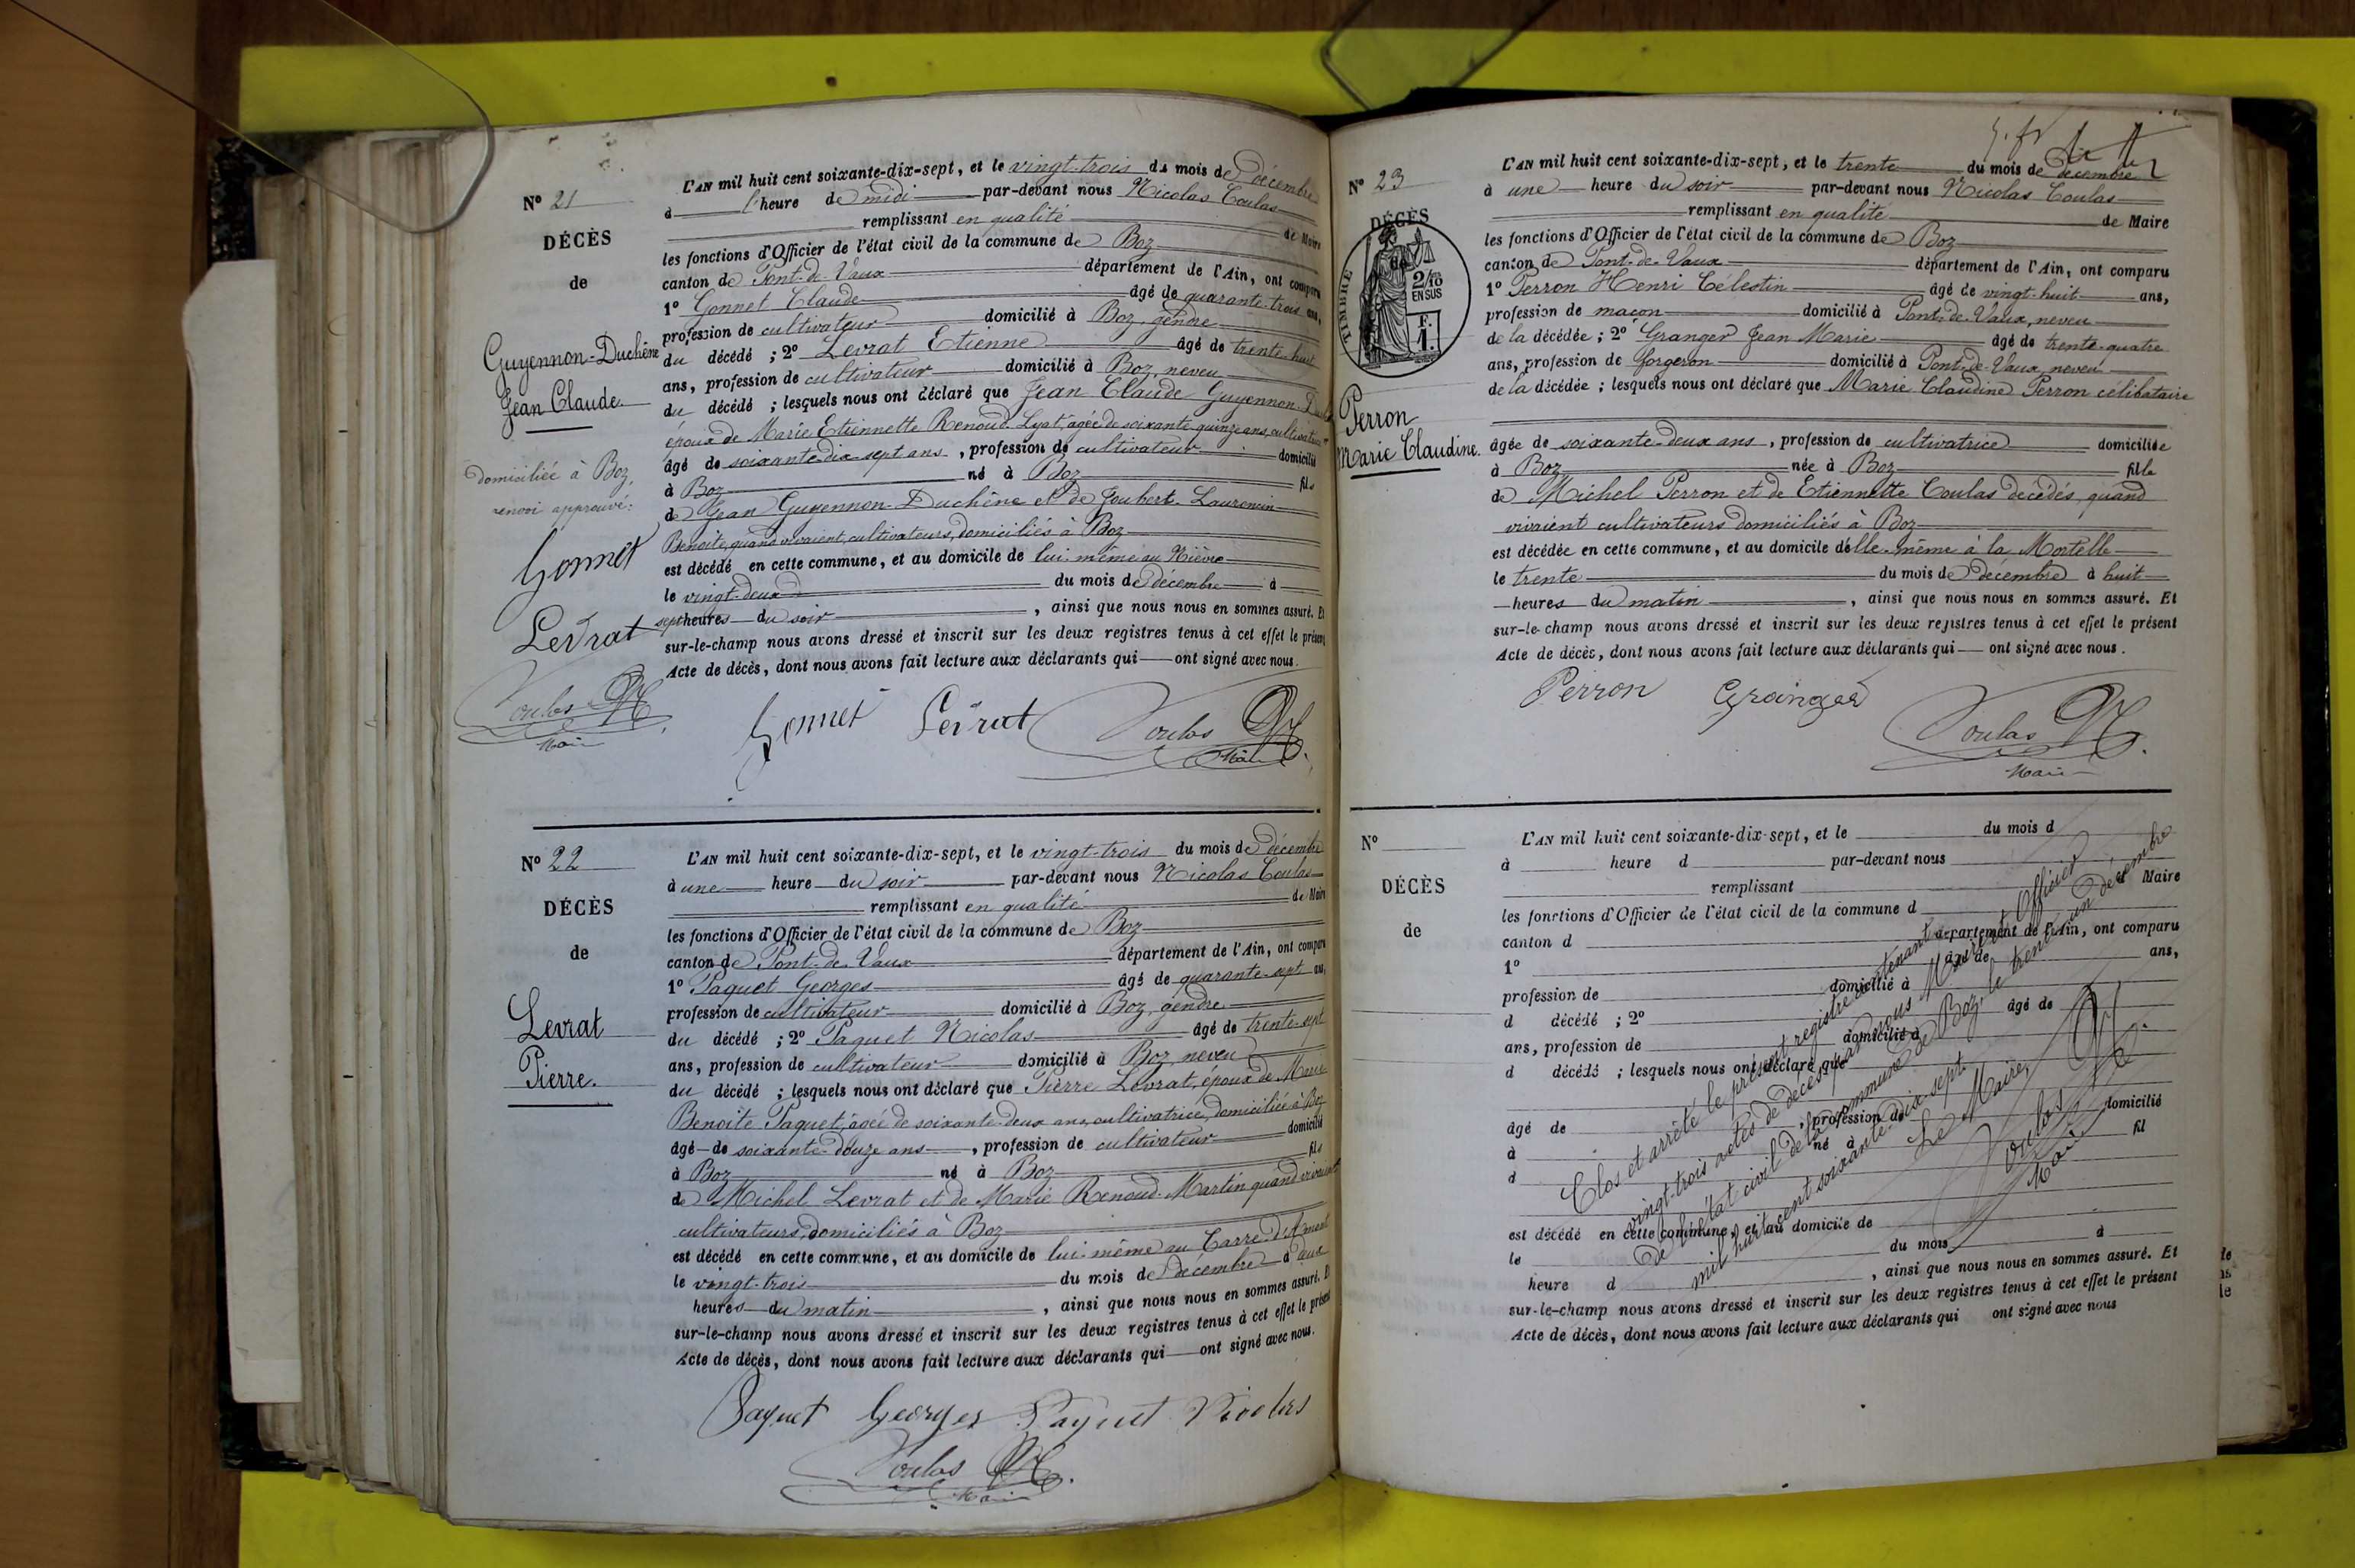 N° 21
DÉCÈS
de
Guyennon-Duchêne
Jean Claude.
domiciliée à Boz,
renvoi approuvé:
Gonnet
Levrat
Coulas
Maire
L'AN mil huit cent soixante-dix-sept, et le vingt-trois du mois de décembre
à l'heure de midi par-devant nous Nicolas Coulas
remplissant en qualité de Maire
les fonctions d'Officier de l'état civil de la commune de Boz
canton de Pont-de-Vaux département de l'Ain, ont comparu
1° Gonnet Claude âgé de quarante-trois ans,
profession de cultivateur domicilié à Boz, gendre
du décédé ; 2° Levrat Etienne âgé de trente-huit
ans, profession de cultivateur domicilié à Boz, neveu
du décédé ; lesquels nous ont déclaré que Jean Claude Guyennon-
époux de Marie Etiennette Renoud-Lyat, agée de soixante-quinze ans, cultivatrice
âgé de soixante-dix-sept ans, profession de cultivateur domicilié
à Boz né à Boz fils
de Jean Guyennon-Duchêne et de Joubert-Laurencin
Benoite, quand vivaient, cultivateurs, domiciliés à Boz
est décédé en cette commune, et au domicile de lui-même au
le vingt-deux du mois de décembre à
sept heures du soir, ainsi que nous nous en sommes assuré. Et
sur-le-champ nous avons dressé et inscrit sur les deux registres tenus à cet effet le présent
Acte de décès, dont nous avons fait lecture aux déclarants qui ont signé avec nous.
Gonnet Levrat Coulas
Maire
N° 22
DÉCÈS
de
Levrat
Pierre.
L'AN mil huit cent soixante-dix-sept, et le vingt-trois du mois de décembre
à une heure du soir par-devant nous Nicolas Coulas
remplissant en qualité de Maire
les fonctions d'Officier de l'état civil de la commune de Boz
canton de Pont-de-Vaux département de l'Ain, ont comparu
1° Paquet Georges âgé de quarante-sept ans,
profession de cultivateur domicilié à Boz, gendre
du décédé ; 2° Paquet Nicolas âgé de trente-sept
ans, profession de cultivateur domicilié à Boz, neveu
du décédé ; lesquels nous ont déclaré que Pierre Levrat, époux de Marie
Benoite Paquet, âgée de soixante-deux ans, cultivatrice, domiciliée à Boz
âgé de soixante-douze ans, profession de cultivateur domicilié
à Boz né à Boz fils
de Michel Levrat et de Marie Renoud-Martin quand vivaient
cultivateurs, domiciliés à Boz
est décédé en cette commune, et au domicile de lui-même au
le vingt-trois du mois de décembre à
heures du matin, ainsi que nous nous en sommes assuré. Et
sur-le-champ nous avons dressé et inscrit sur les deux registres tenus à cet effet le présent
Acte de décès, dont nous avons fait lecture aux déclarants qui ont signé avec nous.
Paquet Georges Paquet Nicolas
Coulas
Maire
N° 23
DÉCÈS
de
TIMBRE
2/10
EN SUS
F.
1.
Perron
Marie Claudine.
L'AN mil huit cent soixante-dix-sept, et le trente du mois de décembre
à une heure du soir par-devant nous Nicolas Coulas
remplissant en qualité de Maire
les fonctions d'Officier de l'état civil de la commune de Boz
canton de Pont-de-Vaux département de l'Ain, ont comparu
1° Perron Henri Célestin âgé de vingt-huit ans,
profession de maçon domicilié à Pont-de-Vaux, neveu
de la décédée ; 2° Granger Jean Marie âgé de trente-quatre
ans, profession de forgeron domicilié à Pont-de-Vaux, neveu
de la décédée ; lesquels nous ont déclaré que Marie Claudine Perron célibataire
âgée de soixante-deux ans, profession de cultivatrice domiciliée
à Boz née à Boz fille
de Michel Perron et de Etiennette Coulas décédés, quand
vivaient cultivateurs domiciliés à Boz
est décédée en cette commune, et au domicile d'elle-même à la Mortelle
le trente du mois de décembre à huit
heures du matin, ainsi que nous nous en sommes assuré. Et
sur-le-champ nous avons dressé et inscrit sur les deux registres tenus à cet effet le présent
Acte de décès, dont nous avons fait lecture aux déclarants qui ont signé avec nous.
Perron Granger Coulas
Maire
N°
DÉCÈS
de
L'AN mil huit cent soixante-dix-sept, et le du mois d
à heure d par-devant nous
remplissant de Maire
les fonctions d'Officier de l'état civil de la commune d
canton d département de l'Ain, ont comparu
1° âgé de ans,
profession de domicilié à
d décédé ; 2° âgé de
ans, profession de domicilié à
d décédé ; lesquels nous ont déclaré que
âgé de , profession de domicilié
à né à fil
d
est décédé en cette commune, et au domicile de
le du mois à
heure d , ainsi que nous nous en sommes assuré. Et
sur-le-champ nous avons dressé et inscrit sur les deux registres tenus à cet effet le présent
Acte de décès, dont nous avons fait lecture aux déclarants qui ont signé avec nous
Clos et arrêté le présent registre contenant
vingt-trois actes de décès par nous Maire et Officier
de l'état civil de la commune de Boz, le trente-un décembre
mil huit cent soixante-dix-sept.
Le Maire,
Coulas
Maire